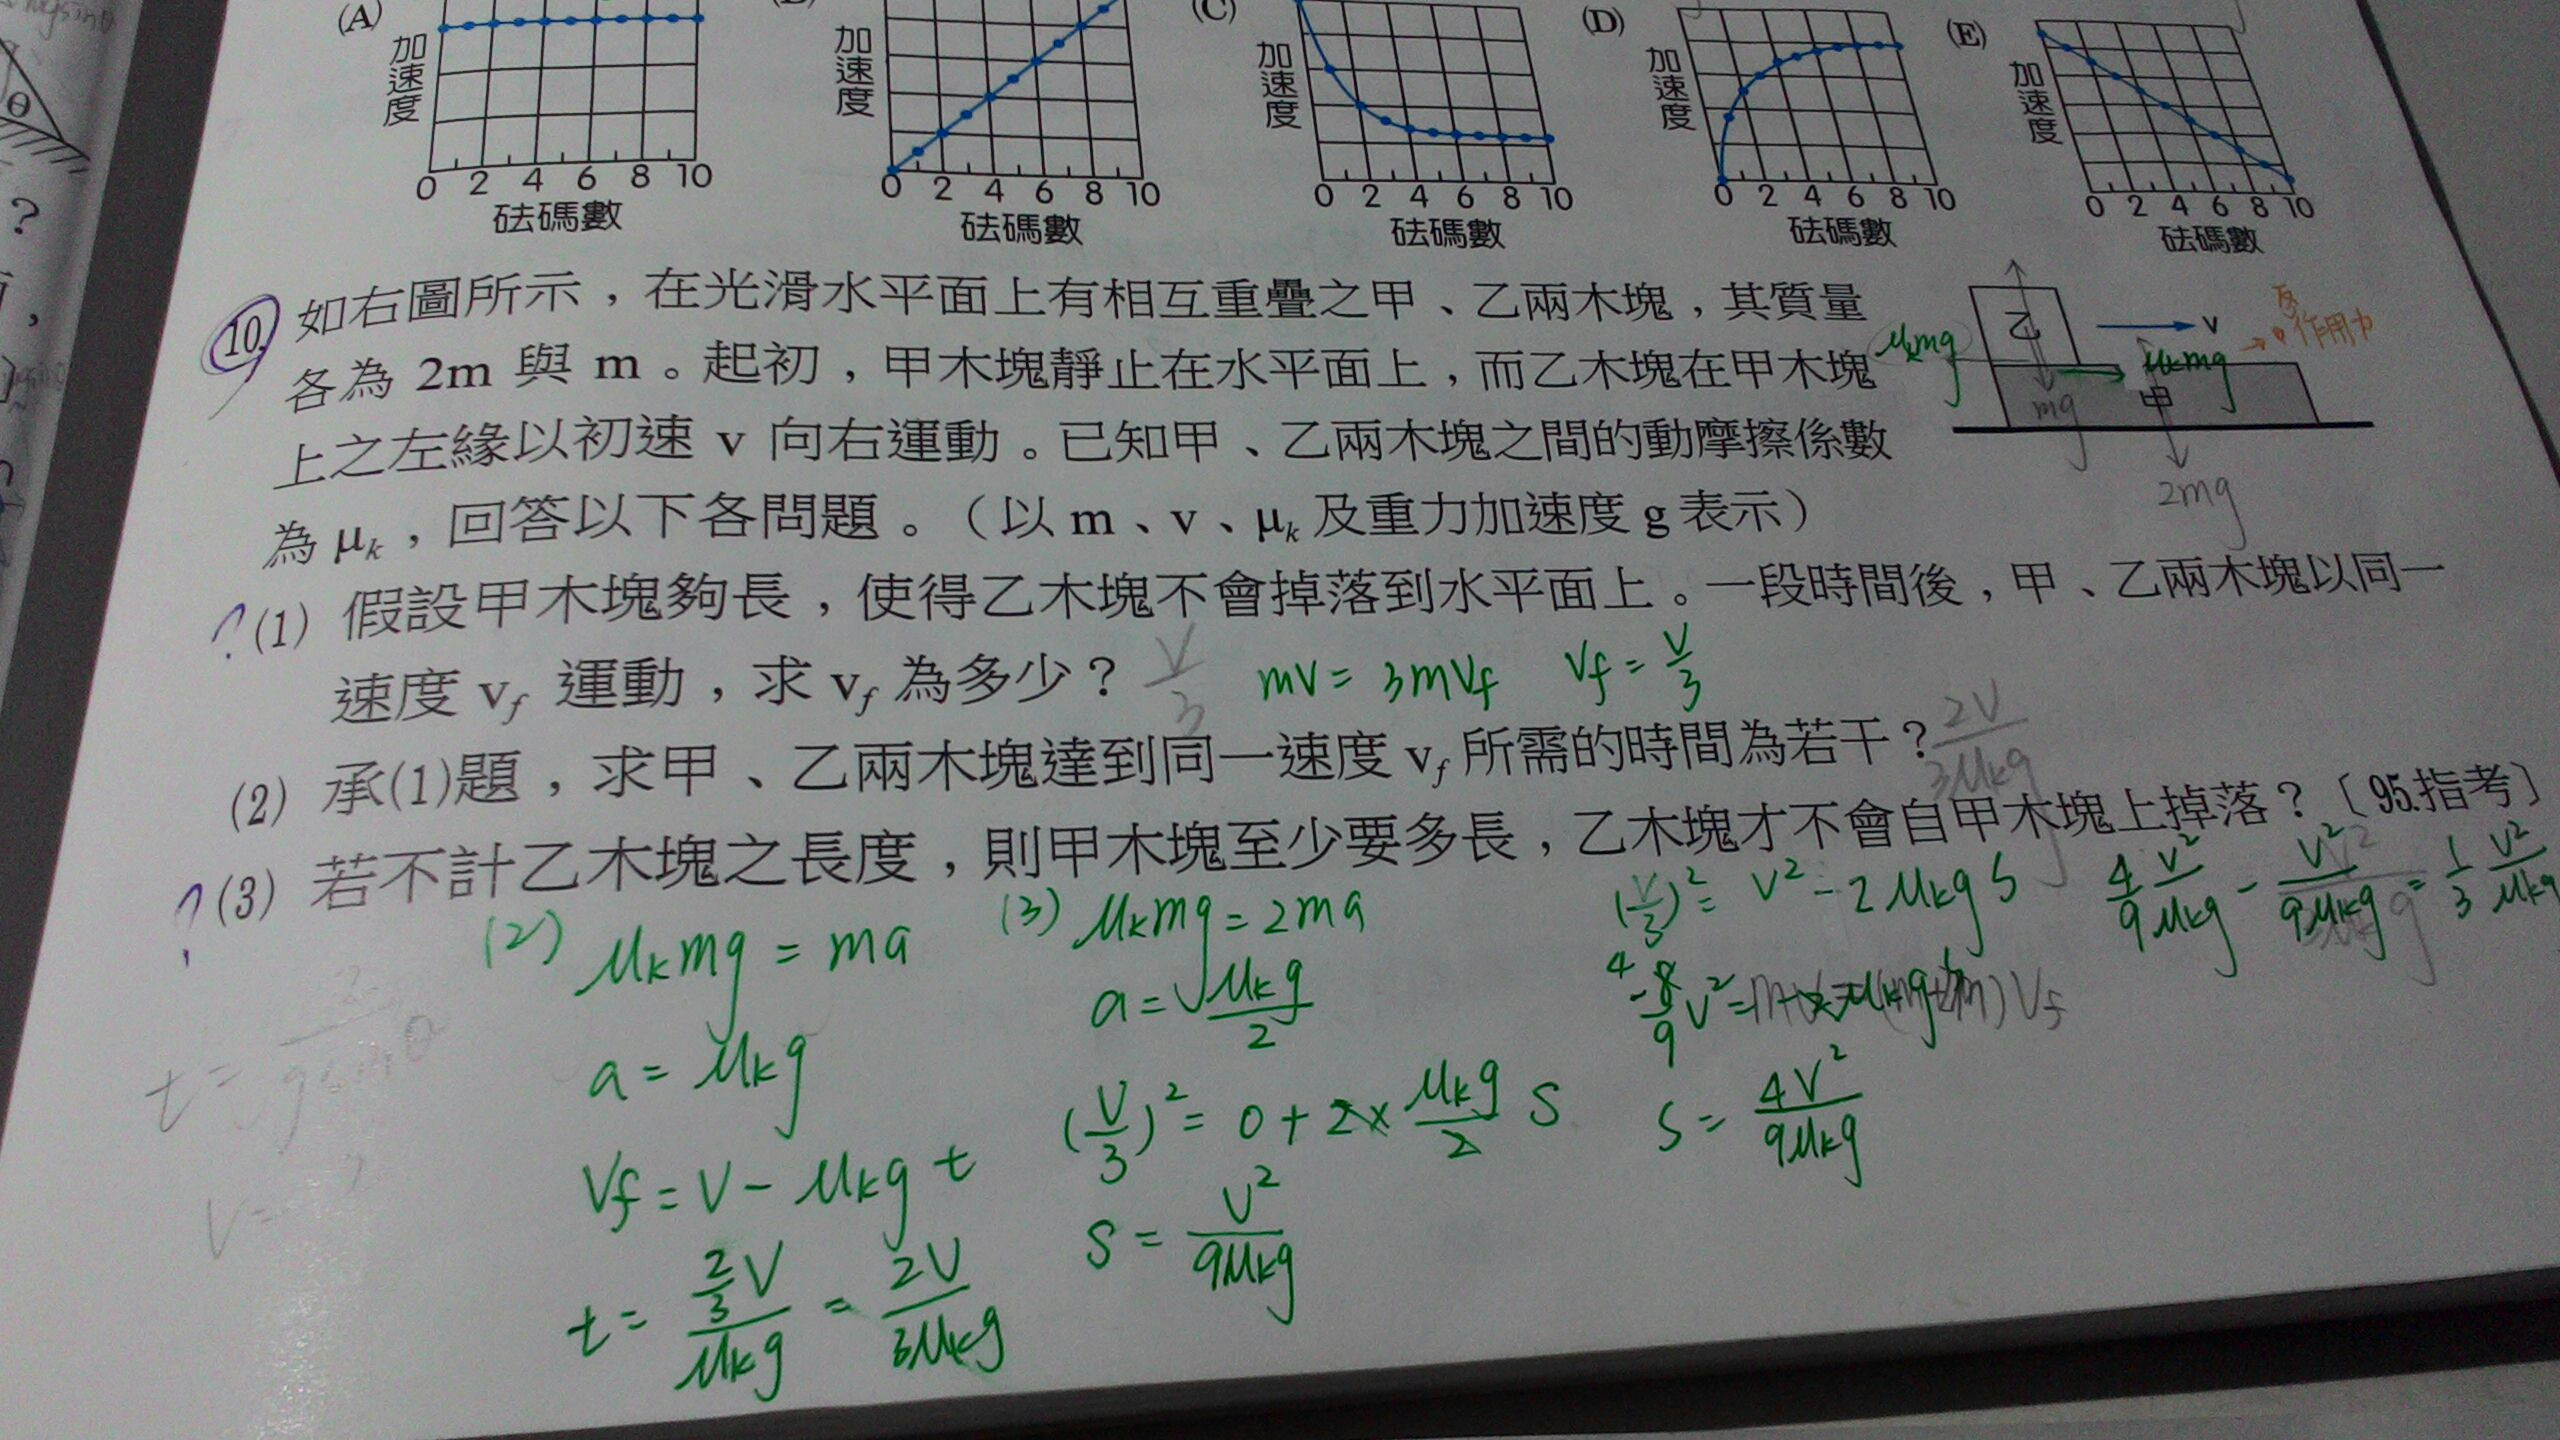 (A)
(C)
(D)
(E)
加速度
加速度
加速度
加速度
加速度
0 2 4 6 8 10
0 2 4 6 8 10
0 2 4 6 8 10
0 2 4 6 8 10
0 2 4 6 8 10
砝碼數
砝碼數
砝碼數
砝碼數
砝碼數
θ
?
10. 如右圖所示，在光滑水平面上有相互重疊之甲、乙兩木塊，其質量
各為 2m 與 m。起初，甲木塊靜止在水平面上，而乙木塊在甲木塊
上之左緣以初速 v 向右運動。已知甲、乙兩木塊之間的動摩擦係數
為 μk，回答以下各問題。（以 m、v、μk 及重力加速度 g 表示）
乙
v
反作用力
μkmg
μkmg
甲
mg
2mg
?(1) 假設甲木塊夠長，使得乙木塊不會掉落到水平面上。一段時間後，甲、乙兩木塊以同一
速度 vf 運動，求 vf 為多少？ v/3 mv = 3mvf vf = v/3
(2) 承(1)題，求甲、乙兩木塊達到同一速度 vf 所需的時間為若干？ 2v/3μkg
?(3) 若不計乙木塊之長度，則甲木塊至少要多長，乙木塊才不會自甲木塊上掉落？〔95.指考〕
(2) μkmg = ma
a = μkg
vf = v - μkg t
t = 2/3 v / μkg = 2v / 3μkg
(3) μkmg = 2ma
a = μkg / 2
(v/3)² = 0 + 2 × μkg/2 S
S = v² / 9μkg
(v/3)² = v² - 2μkg S
S = 4v² / 9μkg
4/9 v²/μkg - v²/9μkg = 1/3 v²/μkg